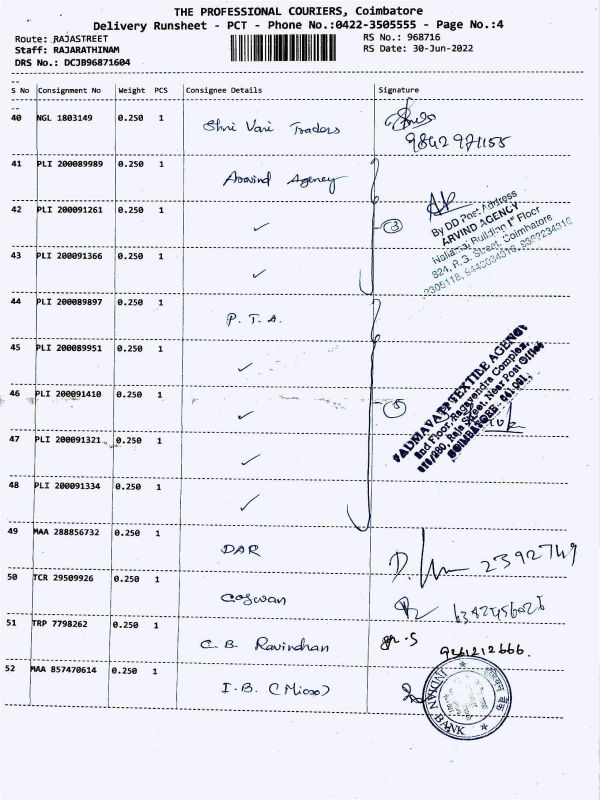 THE PROFESSIONAL COURIERS, Coimbatore
Delivery Runsheet - PCT - Phone No.:0422-3505555 - Page No.:4
Route: RAJASTREET RS No.: 968716
Staff: RAJARATHINAM RS Date: 30-Jun-2022
DRS No.: DCJB96871604
S No Consignment No Weight PCS Consignee Details Signature
40 NGL 1803149 0.250 1 Shri Vari Traders
9842971155
41 PLI 200089989 0.250 1 Aravind Agency
42 PLI 200091261 0.250 1 ✓ (3)
By DD Post Address
ARVIND AGENCY
43 PLI 200091366 0.250 1 ✓
44 PLI 200089897 0.250 1 P. T. A.
45 PLI 200089951 0.250 1 ✓
46 PLI 200091410 0.250 1 ✓ (5)
PADMAVATI TEXTILE AGENCY
2nd Floor, Ragavendra Complex,
Raja Street, Near Post Office
COIMBATORE - 641 001.
47 PLI 200091321 0.250 1 ✓
48 PLI 200091334 0.250 1 ✓
49 MAA 288856732 0.250 1 DAR 2392749
50 TCR 29509926 0.250 1
51 TRP 7798262 0.250 1 C. B. Ravindhan
52 MAA 857470614 0.250 1 I.B.
INDIAN BANK
इंडियन बैंक